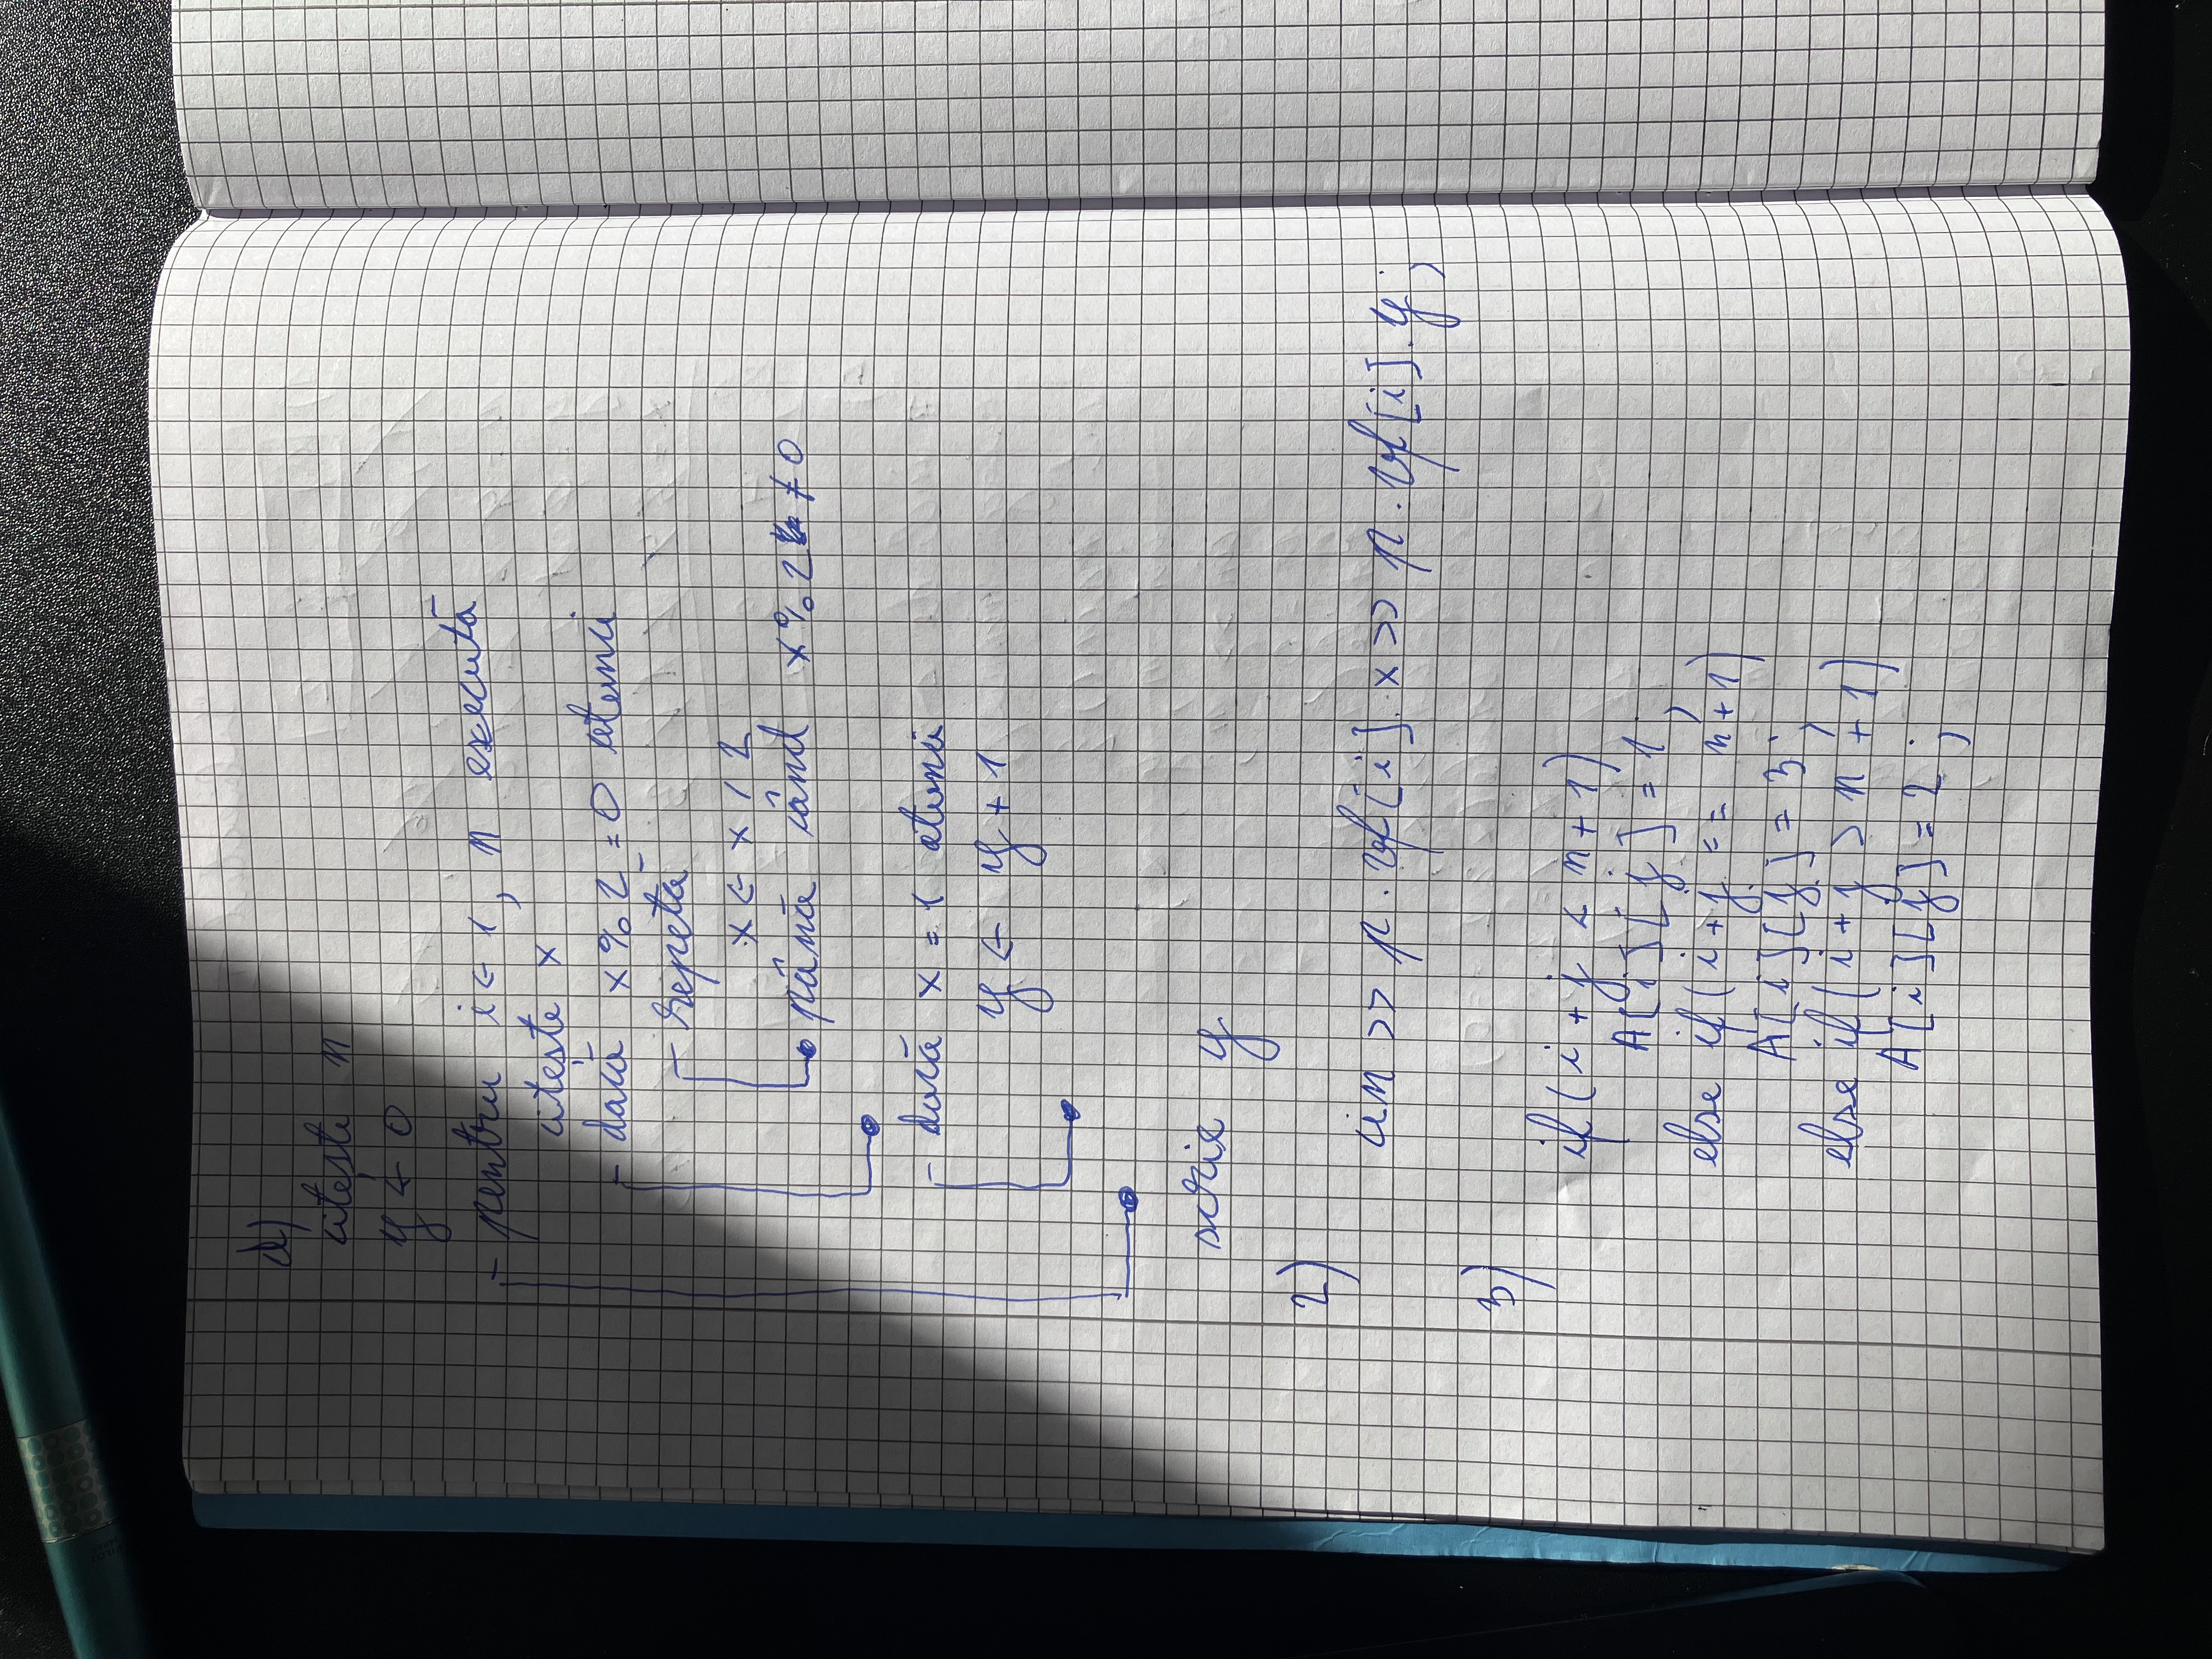 d)
citește n
y ← 0
pentru i ← 1, n execută
citește x
dacă x % 2 = 0 atunci
repetă
x ← x / 2
până când x % 2 ≠ 0
dacă x = 1 atunci
y ← y + 1
scrie y
2)
cin >> p.vf[i].x >> p.vf[i].y;
3)
if (i + j < n + 1)
A[i][j] = 1;
else if (i + j == n + 1)
A[i][j] = 3;
else if (i + j > n + 1)
A[i][j] = 2;